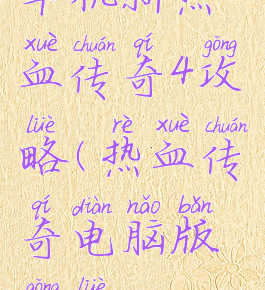 xuè chuán qí gōng
血传奇4攻
lüè rè xuè chuán
略(热血传
qí diàn nǎo bǎn
奇电脑版
gōng lüè